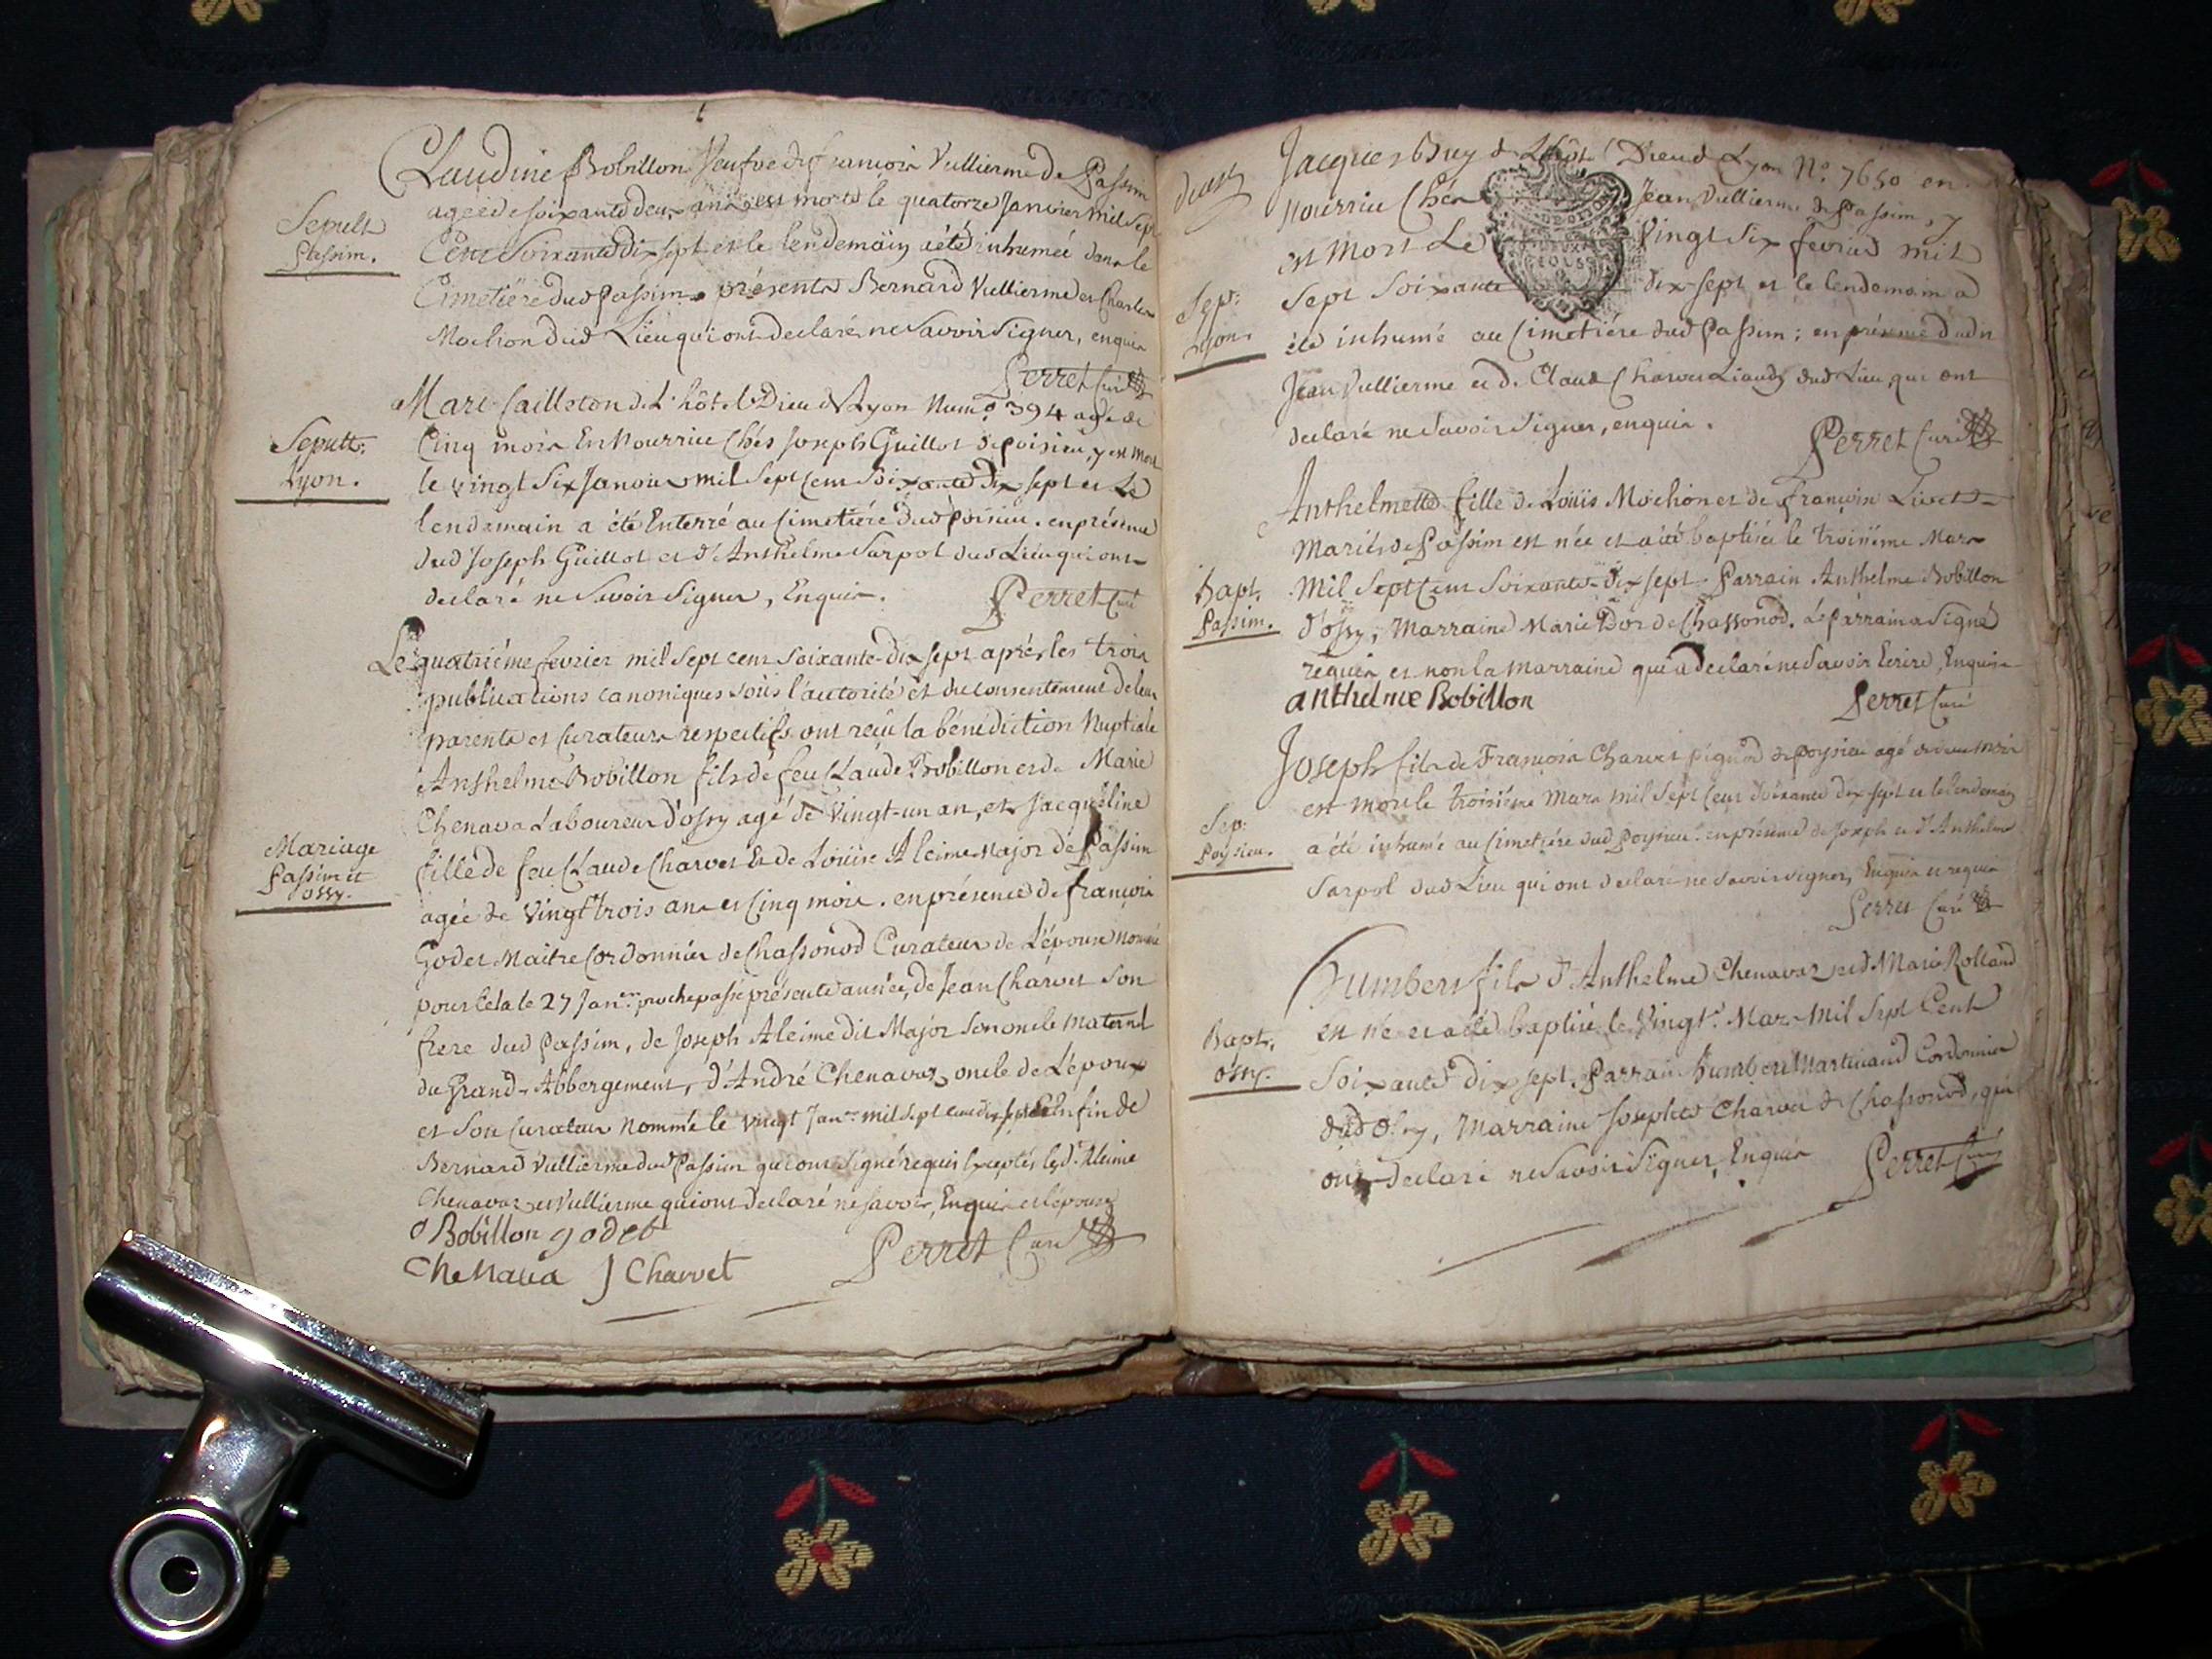 Claudine Bobillon Veufve de françois Vullierme de Passim
agée de soixante deux ans est morte le quatorze Janvier mil Sept
Sepult
Passim.
Cent Soixante dix sept et le lendemain a été inhumée dans le
Cimetiére dud Passim présents Bernard Vullierme et Charles
Mochon dud Lieu qui ont declaré ne Savoir Signer, enquis
Perret Curé
Marc Cailloton de L'hôtel Dieu de Lyon Num.º 394 agé de
Sepult.
Lyon.
Cinq mois En Nourrice Chés Joseph Guillot de poisieu, y est mort
le vingt Six Janvier mil Sept Cent Soixante dix sept et Le
lendemain a été Enterré au Cimetiére dud poisieu. en présence
dud Joseph Guillot et d'Anthelme Sarpol dud Lieu qui ont
declaré ne Savoir Signer, Enquis.
Perret Curé
Le quatriéme fevrier mil Sept cent Soixante-dix sept aprés les trois
publications canoniques soûs l'autorité et du consentement de leurs
parents et Curateurs respectifs ont reçu la bénédiction Nuptiale
Anthelme Bobillon fils de feu Claude Bobillon et de Marie
Chenava Laboureur d'ossy agé de Vingt-un an, et Jacqueline
Mariage
Passim et
ossy.
fille de feu Claude Charvet Et de Loüise Aleime Major de Passim
agée de Vingt trois ans et Cinq mois. en présence de françois
Godet Maitre Cordonnier de Chassonod Curateur de L'épouse Nommé
pour Cela le 27 Jan.er prochepassé présente année, de Jean Charvet Son
frere dud Passim, de Joseph Aleime dit Major Son oncle Maternel
du Grand-Abbergement, d'André Chenavaz oncle de L'époux
et Son Curateur Nommé le Vingt Jan.er mil Sept cent dix sept Enfin de
Bernard Vullierme dud Passim qui ont Signé requis Exceptés lesd. Aleime
Chenavaz et Vullierme qui ont declaré ne savoir, Enquis et l'épouse
Bobillon godet
Chenava J Charvet
Perret Curé
Jacques Buy de L'hôpt. Dieu de Lyon Nº. 7650 en
nourrice Chés Jean Vullierme de Passim, y
est Mort Le Vingt Six fevrier mil
Sep:
Lyon.
Sept Soixante dix-sept et le lendemain a
été inhumé au Cimetiére dud Passim; en présence dudit
Jean Vullierme et d. Claude Charvet Liaudy dud Lieu, qui ont
declaré ne Savoir Signer, enquis.
Perret Curé
Anthelmette fille de Loüis Mochon et de françoise Livet
Mariés de Passim est née et a été baptisée le troisiéme Mars
Bapt.
Passim.
Mil Sept Cent Soixante-dix sept. Parrain Anthelme Bobillon
d'ossy, Marraine Marie Dor de Chassonod. Le Parrain a Signé
requis et non la Marraine qui a declaré ne Savoir Ecrire, Enquise
anthelme Bobillon
Perret Curé
Joseph fils de François Charvet pignod de poysieu agé de deux mois
est mort le troisiéme Mars mil Sept Cent Soixante dix sept et le lendemain
Sep:
Poysieu.
a été inhumé au Cimetiére dud Poysieu. en présence de Joseph et d'Anthelme
Sarpol dud Lieu qui ont declaré ne Savoir signer, Enquis et requis
Perret Curé
Humbert fils d'Anthelme Chenavaz et de Marie Rolland
est né et a été baptisé le Vingt Mars Mil Sept Cent
Bapt.
ossy.
Soixante dix sept. Parrain Humbert Martinand Cordonnier
dud ossy, Marraine Josephte Charvet de Chassonod, qui
ont declaré ne Savoir Signer, Enquis
Perret Curé